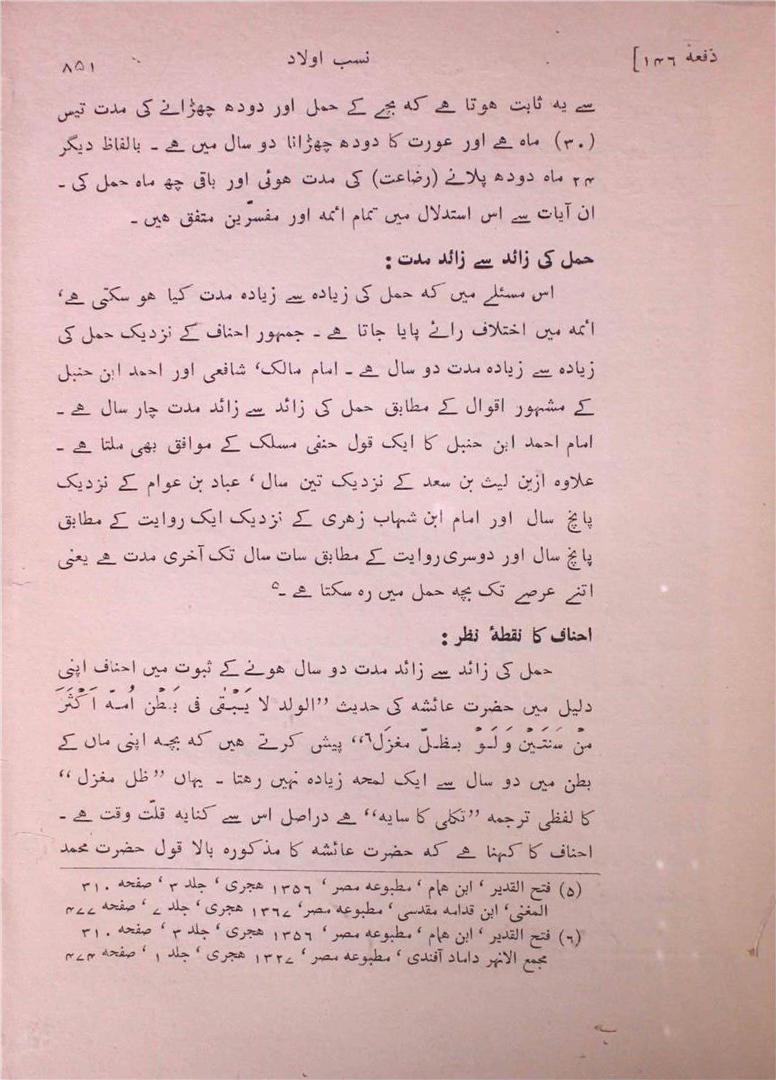 دفعہ ۱۴۶] نسب اولاد ۸۵۱
سے یہ ثابت ہوتا ہے کہ بچے کے حمل اور دودھ چھڑانے کی مدت تیس
(۳۰) ماہ ہے اور عورت کا دودھ چھڑانا دو سال میں ہے ۔ بالفاظ دیگر
۲۴ ماہ دودھ پلانے (رضاعت) کی مدت ہوئی اور باقی چھ ماہ حمل کی ۔
ان آیات سے اس استدلال میں تمام ائمہ اور مفسّرین متفق ہیں ۔
حمل کی زائد سے زائد مدت :
اس مسئلے میں کہ حمل کی زیادہ سے زیادہ مدت کیا ہو سکتی ہے،
ائمہ میں اختلاف رائے پایا جاتا ہے ۔ جمہور احناف کے نزدیک حمل کی
زیادہ سے زیادہ مدت دو سال ہے ۔ امام مالک، شافعی اور احمد ابن حنبل
کے مشہور اقوال کے مطابق حمل کی زائد سے زائد مدت چار سال ہے ۔
امام احمد ابن حنبل کا ایک قول حنفی مسلک کے موافق بھی ملتا ہے ۔
علاوہ ازین لیث بن سعد کے نزدیک تین سال، عباد بن عوام کے نزدیک
پانچ سال اور امام ابن شہاب زہری کے نزدیک ایک روایت کے مطابق
پانچ سال اور دوسری روایت کے مطابق سات سال تک آخری مدت ہے یعنی
اتنے عرصے تک بچہ حمل میں رہ سکتا ہے ۔۵
احناف کا نقطۂ نظر :
حمل کی زائد سے زائد مدت دو سال ہونے کے ثبوت میں احناف اپنی
دلیل میں حضرت عائشہ کی حدیث ”الولد لا یَبْقٰی فی بَطْن اُمہّ اَکْثَرَ
مِنْ سَنَتَیْن وَلَوْ بظلّ مغزَل۶“ پیش کرتے ہیں کہ بچہ اپنی ماں کے
بطن میں دو سال سے ایک لمحہ زیادہ نہیں رہتا ۔ یہاں ”ظل مغزل“
کا لفظی ترجمہ ”تکلی کا سایہ“ ہے دراصل اس سے کنایہ قلّت وقت ہے ۔
احناف کا کہنا ہے کہ حضرت عائشہ کا مذکورہ بالا قول حضرت محمد
(۵) فتح القدیر، ابن ہمام، مطبوعہ مصر، ۱۳۵۶ ہجری، جلد ۳، صفحہ ۳۱۰
المغنی، ابن قدامہ مقدسی، مطبوعہ مصر، ۱۳۶۷ ہجری، جلد ۷، صفحہ ۴۷۷
(۶) فتح القدیر، ابن ہمام، مطبوعہ مصر، ۱۳۵۶ ہجری، جلد ۳، صفحہ ۳۱۰
مجمع الانہر داماد آفندی، مطبوعہ مصر، ۱۳۲۷ ہجری، جلد ۱، صفحہ ۴۷۴